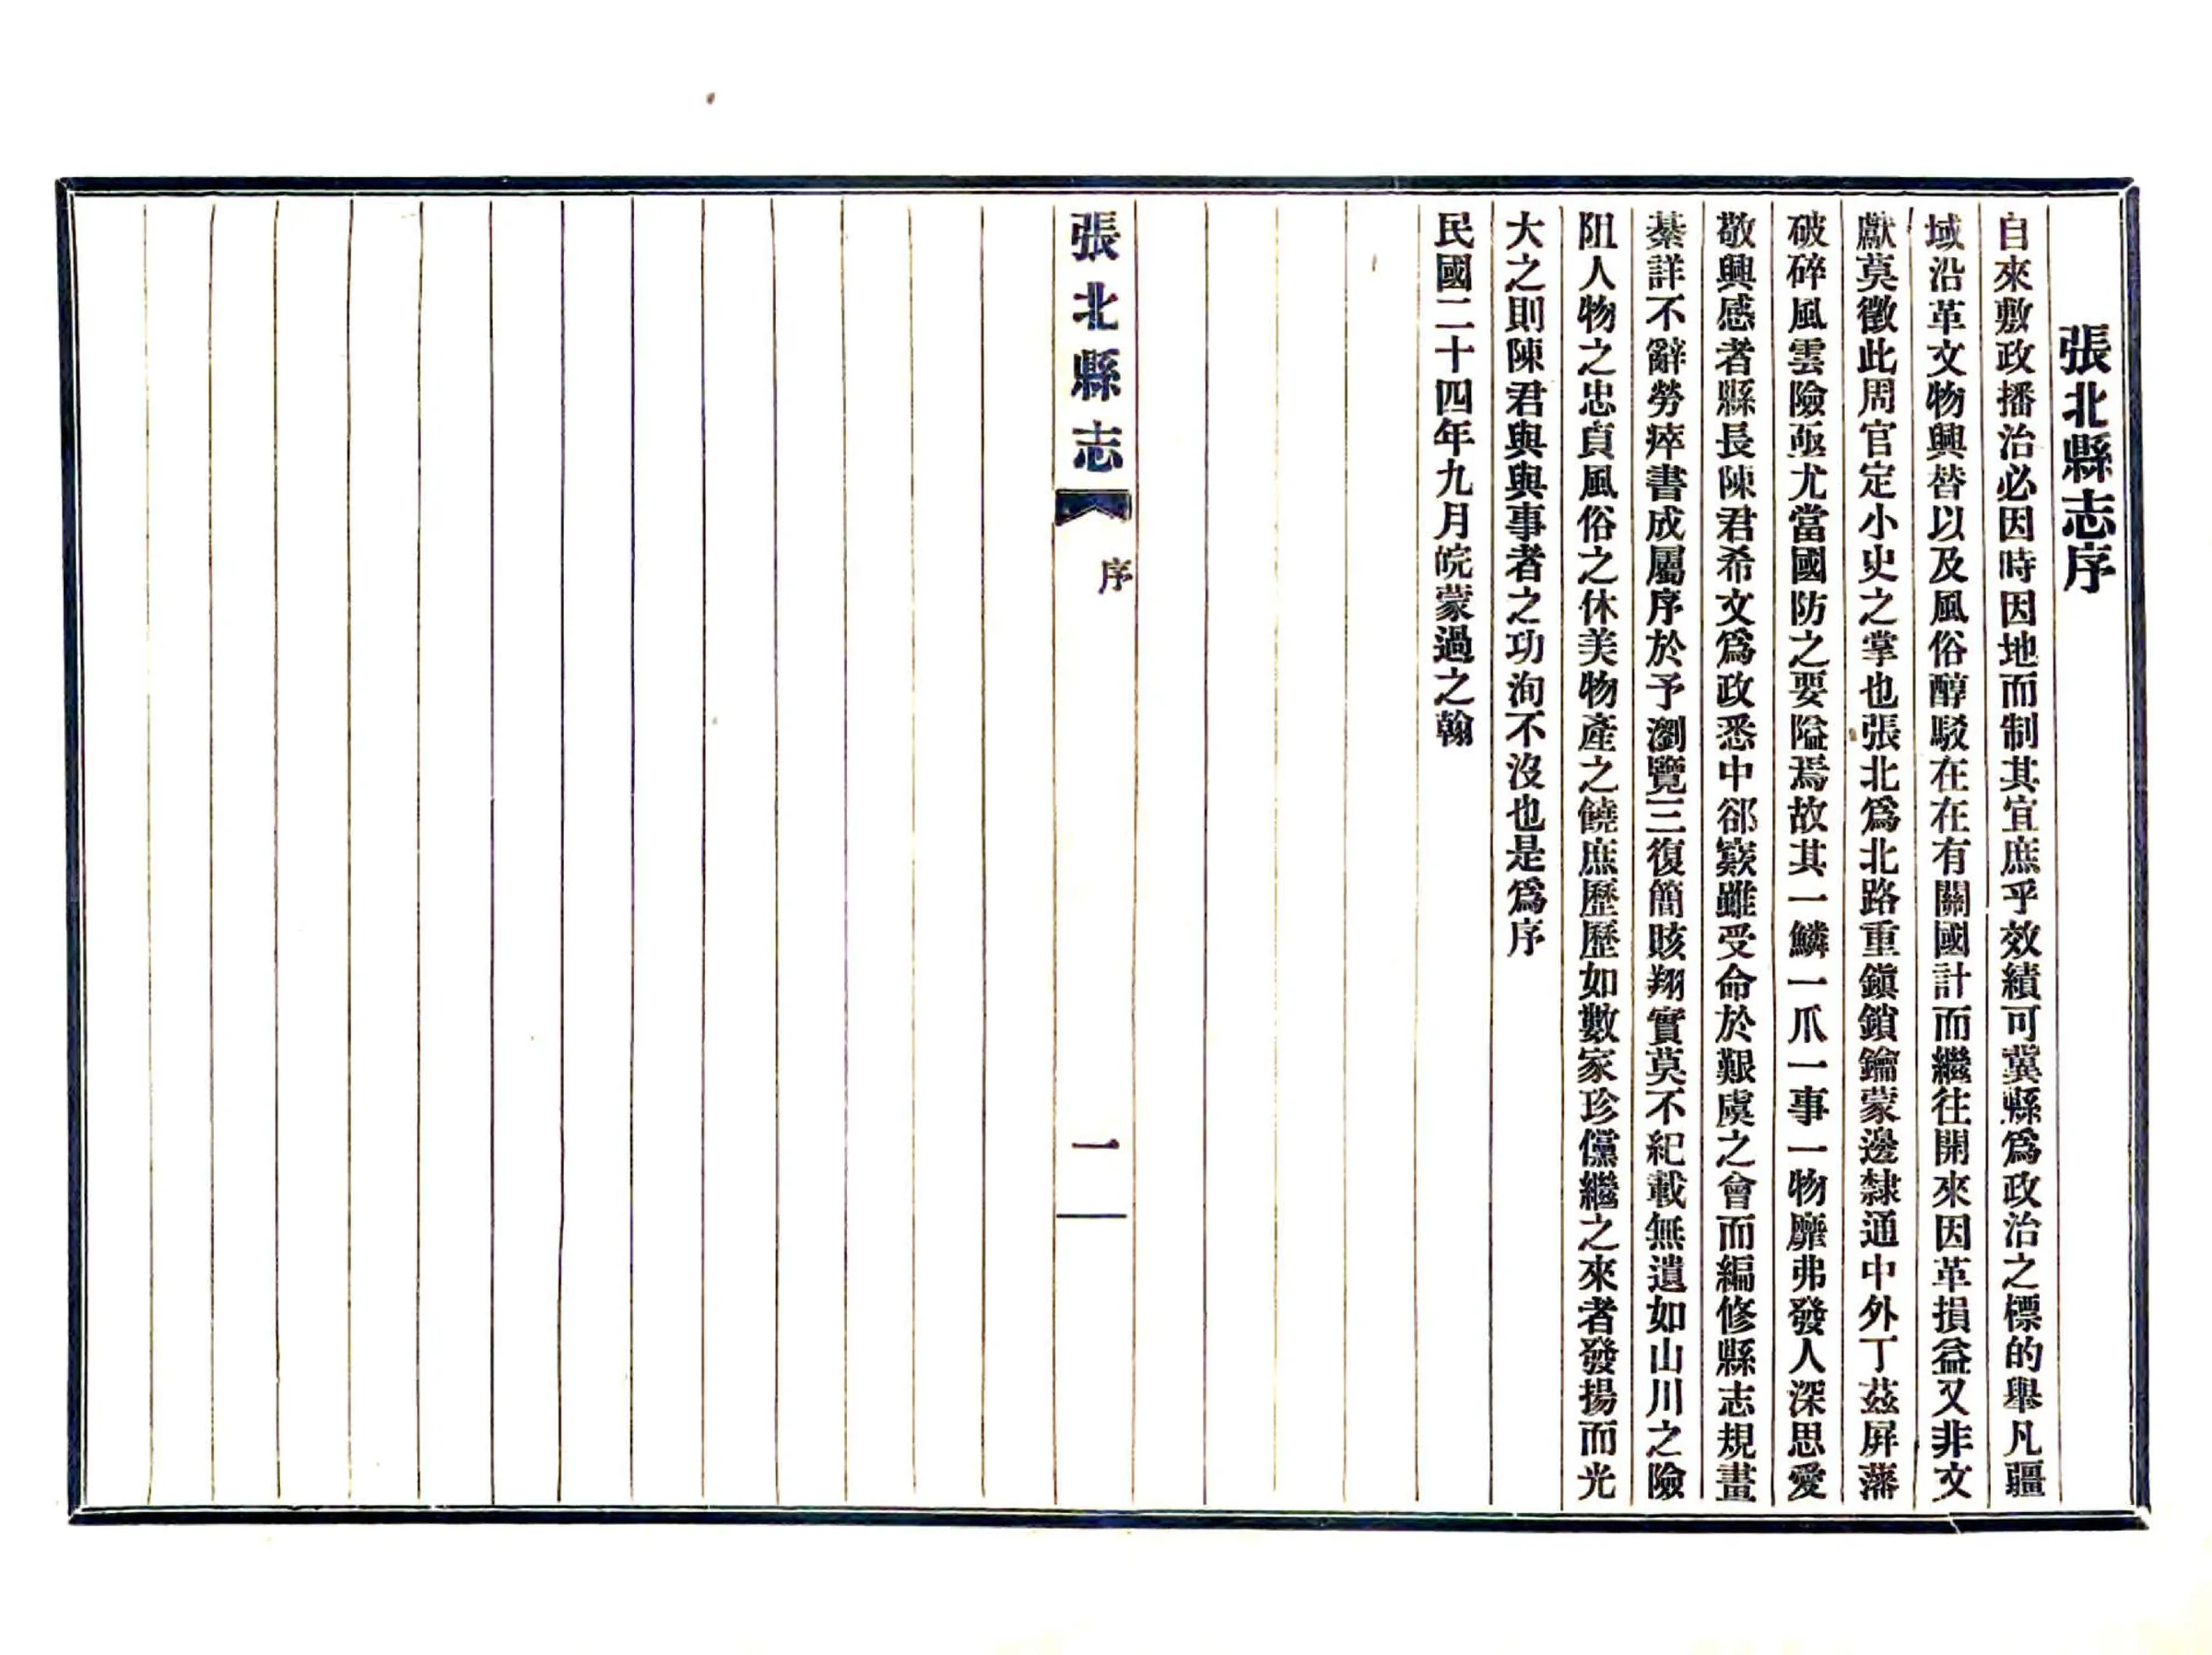 張北縣志序
自來敷政播治必因時因地而制其宜庶乎效績可冀縣爲政治之標的舉凡疆
域沿革文物興替以及風俗醇駁在在有關國計而繼往開來因革損益又非文
獻莫徵此周官定小史之掌也張北爲北路重鎭鎖鑰蒙邊隸通中外丁茲屏藩
破碎風雲險亟尤當國防之要隘焉故其一鱗一爪一事一物靡弗發人深思愛
敬興感者縣長陳君希文爲政悉中郤窾雖受命於艱虞之會而編修縣志規畫
綦詳不辭勞瘁書成屬序於予瀏覽三復簡賅翔實莫不紀載無遺如山川之險
阻人物之忠貞風俗之休美物產之饒庶歷歷如數家珍儻繼之來者發揚而光
大之則陳君與與事者之功洵不沒也是爲序
民國二十四年九月皖蒙過之翰
張北縣志
序
一